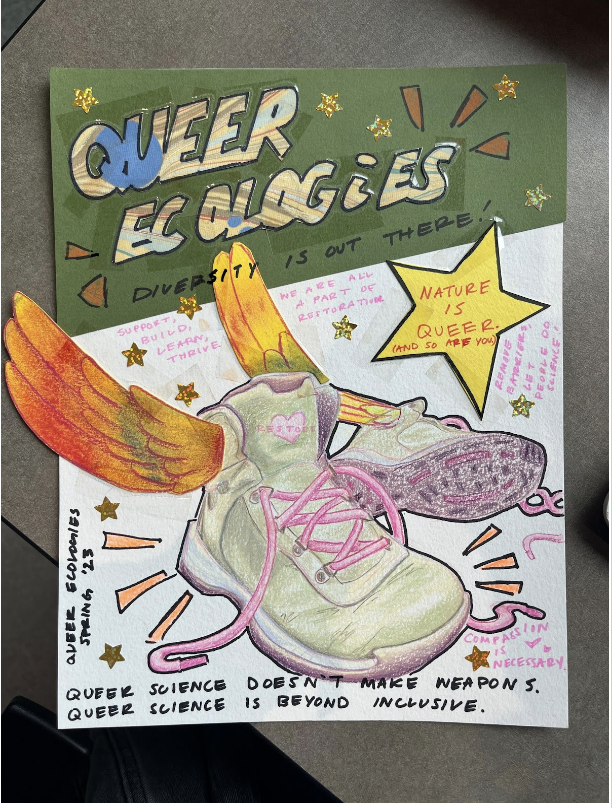 QUEER
ECOLOGIES
DIVERSITY IS OUT THERE!
SUPPORT,
BUILD,
LEARN,
THRIVE.
WE ARE ALL
A PART OF
RESTORATION
NATURE
IS
QUEER.
(AND SO ARE YOU)
REMOVE
BARRIERS.
LET
PEOPLE DO
SCIENCE!
RESTORE
QUEER ECOLOGIES
SPRING '23
COMPASSION
IS
NECESSARY.
QUEER SCIENCE DOESN'T MAKE WEAPONS.
QUEER SCIENCE IS BEYOND INCLUSIVE.